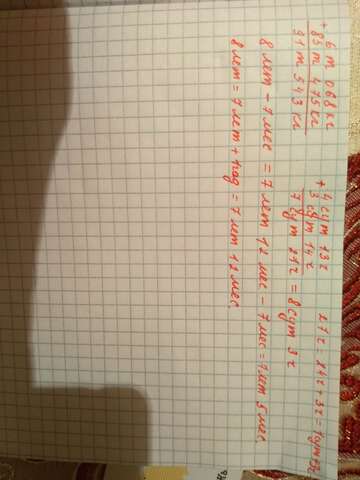 6 т 068 кг
+ 85 т 475 кг
91 т 543 кг
+ 4 сут 13 ч
3 сут 14 ч
7 сут 27 ч = 8 сут 3 ч
27 ч = 24 ч + 3 ч = 1 сут + 3 ч
8 лет - 7 мес = 7 лет 12 мес - 7 мес = 7 лет 5 мес.
8 лет = 7 лет + 1 год = 7 лет 12 мес.